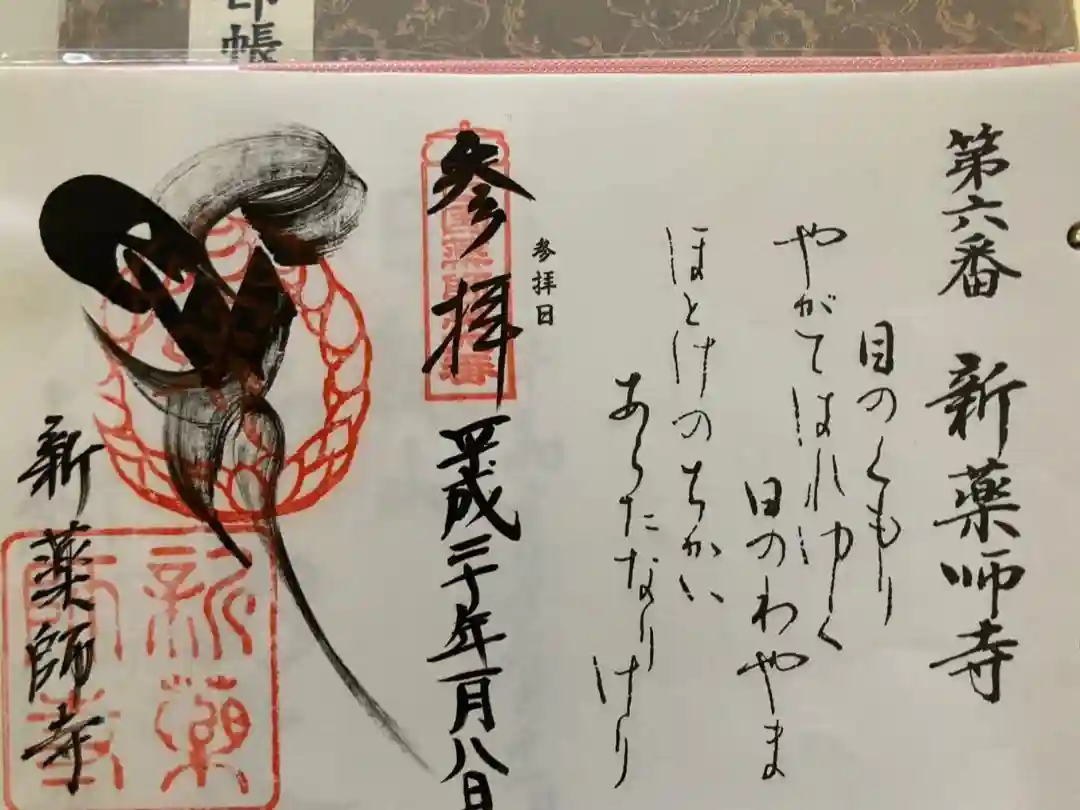 帳
第六番 新薬師寺
目のくもり
やがてはれゆく
日のわやま
ほとけのちかい
あらたなりけり
参拝日
参拝 平成三十年一月八日
新薬師寺
新薬師寺